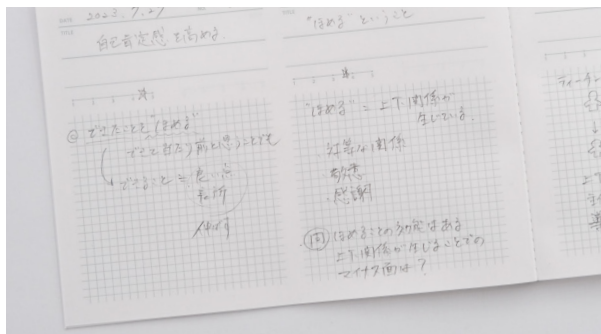 2023.7.27
自己肯定感を高める
◎できたことを"ほめる"
できて当たり前と思うことでも
できること = 良い点
長所
伸ばす
"ほめる"ということ
"ほめる" = 上下関係が
生じている。
・対等な関係
・敬意
・感謝
問 ほめることの効果はある
上下関係が生じることでの
マイナス面は?
ティーチ
↓
上下